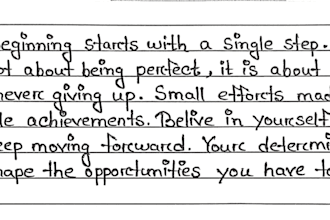 eginning starts with a single step.
ot about being perfect, it is about
never giving up. Small efforts mad
le achievements. Belive in yourself
eep moving forward. Your determi
hape the opportunities you have to